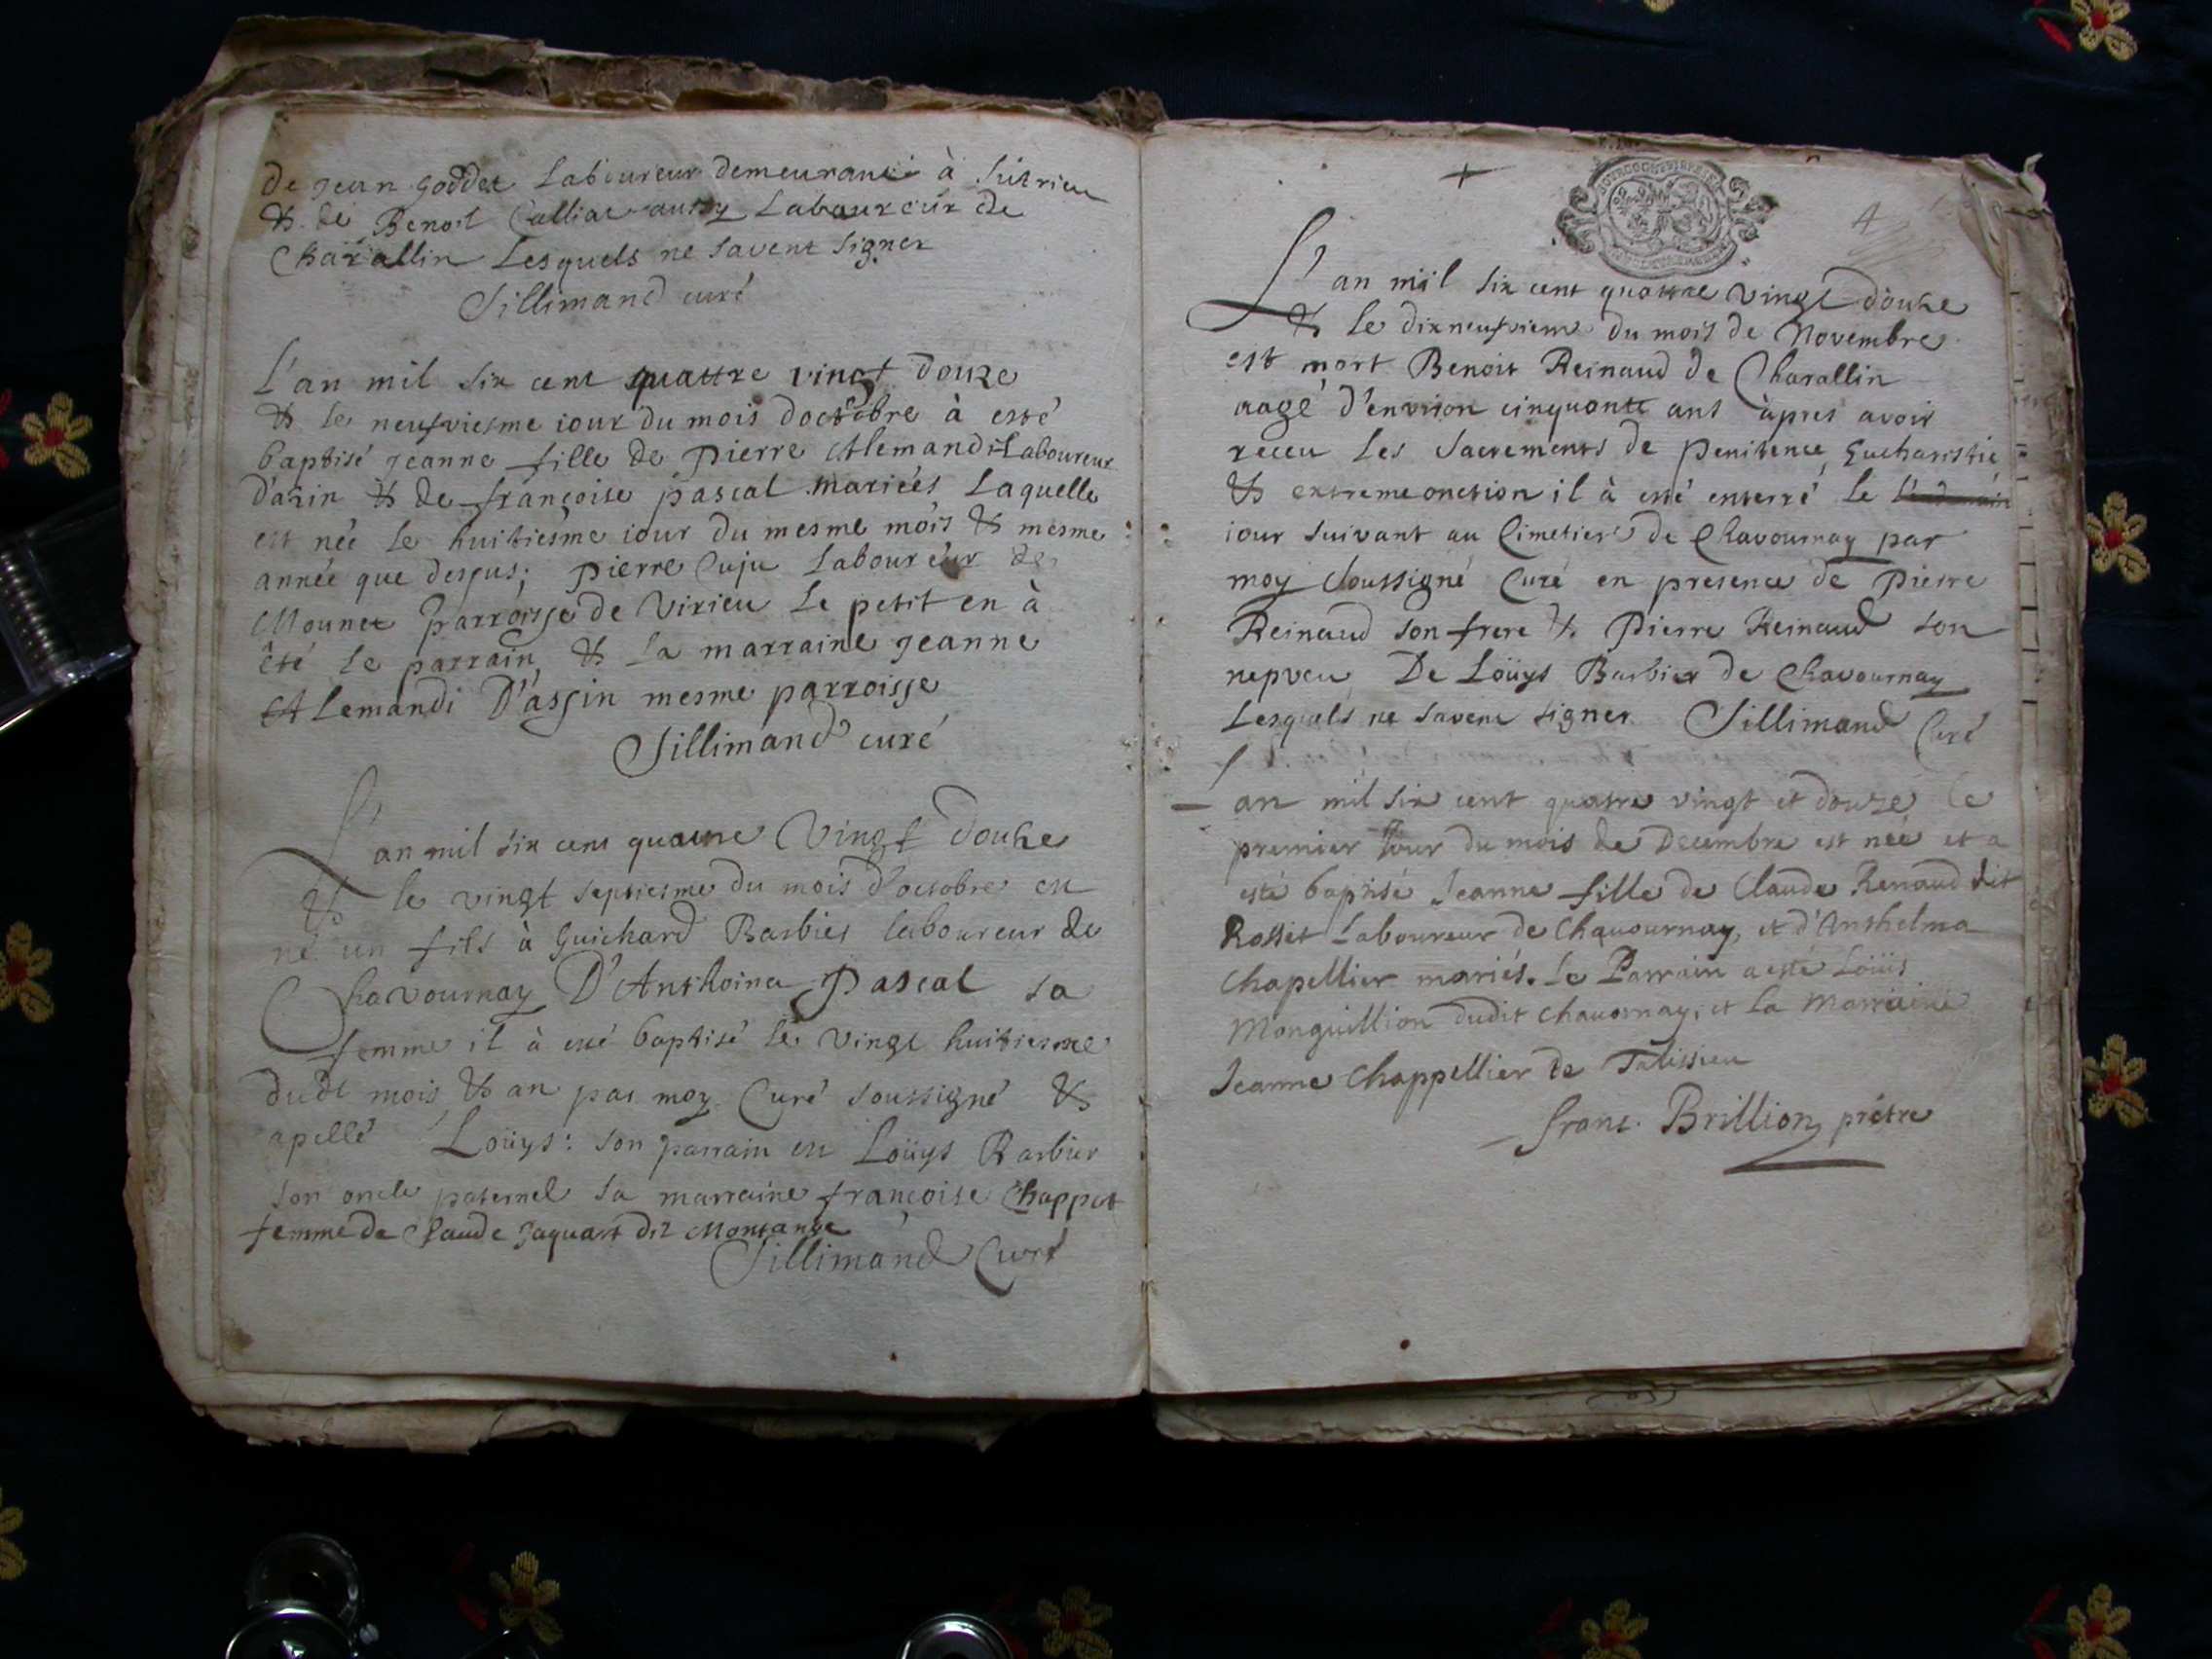 de Jean Goddet Laboureur demeurant à Sutrieu
& de Benoit Calliat aussy Laboureur de
Charallin Lesquels ne savent signer
Sillimand curé
L'an mil six cent quattre vingt douze
& le neufviesme iour du mois d'octobre à esté
baptisé Jeanne fille de Pierre Alemandi Laboureur
d'azin & de françoise pascal mariées Laquelle
est née le huitiesme iour du mesme mois & mesme
année que dessus; Pierre Cuju Laboureur de
Mounet Parroisse de Virieu le petit en à
été le parrain & la marraine Jeanne
Alemandi D'assin mesme parroisse
Sillimand curé
L'an mil six cent quattre Vingt douze
& le vingt septiesme du mois d'octobre est
né un fils à Guichard Barbier laboureur de
Chavournay D'Anthoina Pascal sa
femme il à esté baptisé le vingt huitiesme
dudt mois & an par moy Curé soussigné &
apellé Loüys: son parrain est Loüys Barbier
son oncle paternel sa marraine françoise Chappot
femme de Claude Jaquart dit Montange
Sillimand Curé
4
L'an mil six cent quattre vingt douze
& le dixneufviem du mois de Novembre
est mort Benoit Reinaud de Charallin
aagé d'environ cinquante ans àpres avoir
receu les Sacrements de Penitence, Eucharistie
& extremeonction il à esté enterré le
iour suivant au Cimetier de Chavournay par
moy soussigné Curé en presence de Pierre
Reinaud son frere & Pierre Reinaud son
nepveu De Loüys Barbier de Chavournay
Lesquels ne savent signer Sillimand Curé
L'an mil six cent quatre vingt et douze le
premier Jour du mois de Decembre est née et a
esté baptisé Jeanne fille de Claude Renaud dit
Rosset Laboureur de Chavournay, et d'Anthelma
Chapellier mariés. Le Parrain a esté Loüis
Monguillion dudit chauornay, et la Marraine
Jeanne Chappellier de Talissieu
franc. Brillion prêtre